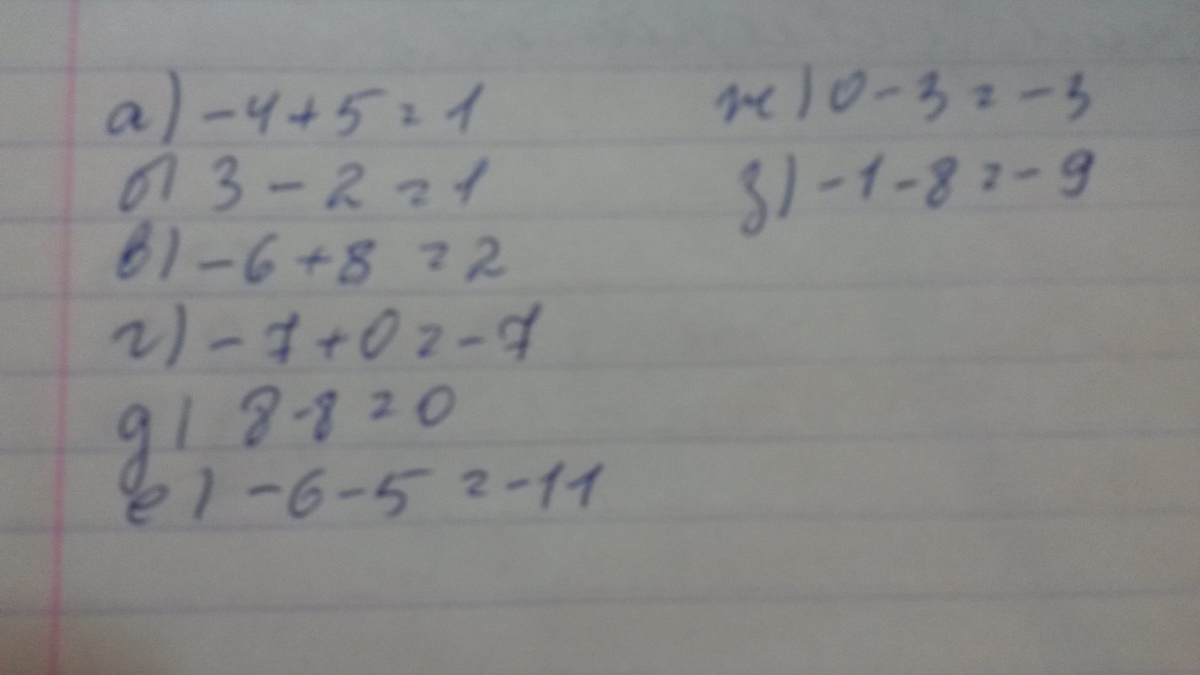 а) -4+5=1
б) 3-2=1
в) -6+8=2
г) -7+0=-7
д) 8-8=0
е) -6-5=-11
ж) 0-3=-3
з) -1-8=-9